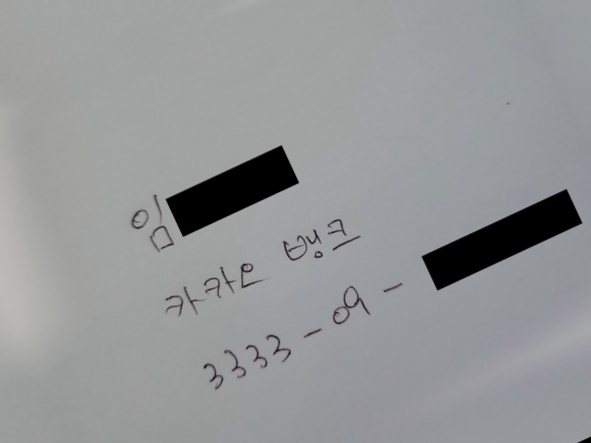 임
카카오 뱅크
3333-09-